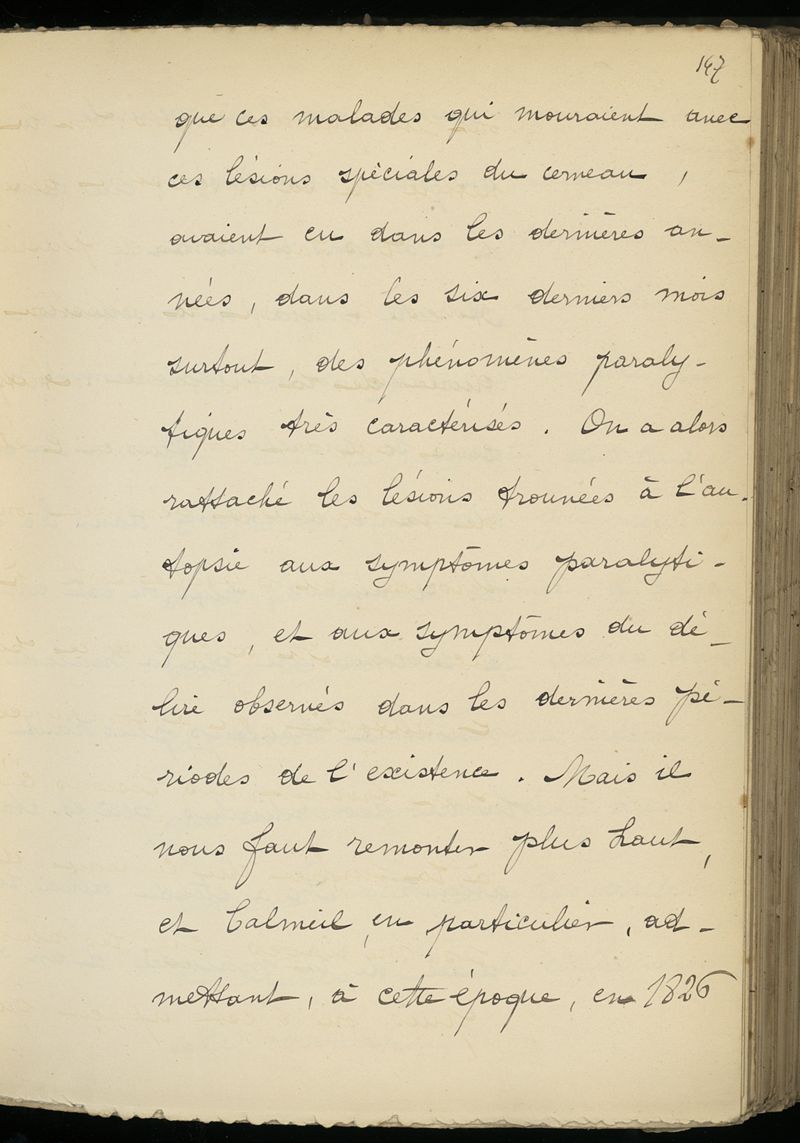 147
que ces malades qui mouraient avec
ces lésions spéciales du cerveau,
avaient eu dans les dernières an-
nées, dans les six derniers mois
surtout, des phénomènes paraly-
tiques très caractérisés. On a alors
rattaché les lésions trouvées à l'au-
topsie aux symptômes paralyti-
ques, et aux symptômes du dé-
lire observés dans les dernières pé-
riodes de l'existence. Mais il
nous faut remonter plus haut,
et Calmeil, en particulier, ad-
mettant, à cette époque, en 1826